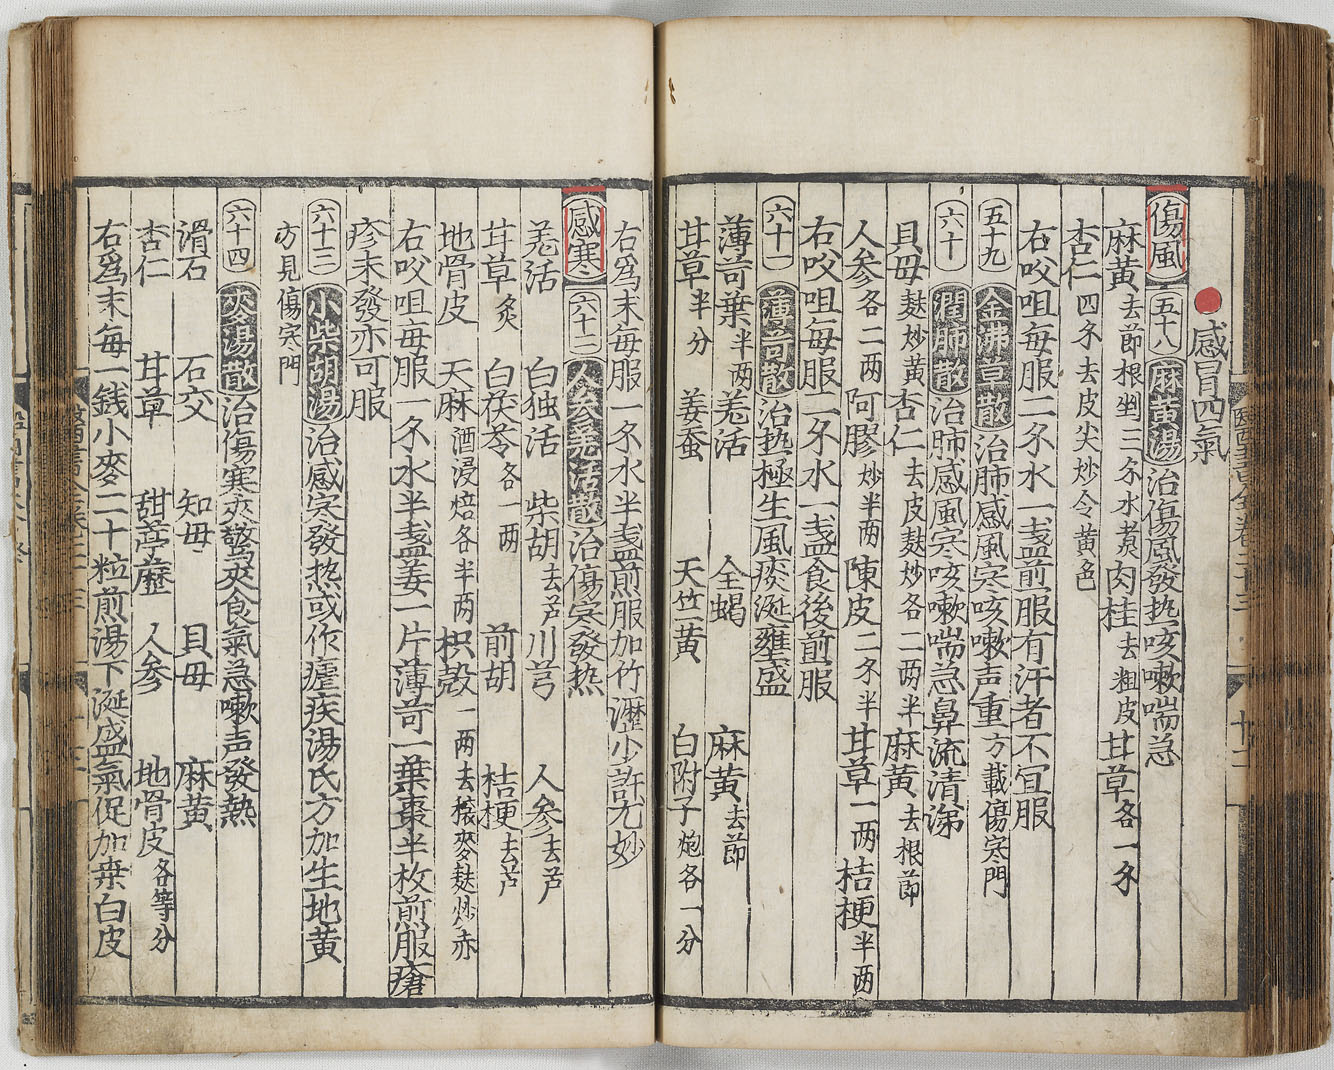 感冒四氣
傷風 五十八 麻黄湯 治傷風發热咳嗽喘急
麻黄去節根剉三分水煮 肉桂去粗皮 甘草各一分
杏仁四分去皮尖炒令黄色
右㕮咀每服二分水一盞煎服有汗者不宜服
五十九 金沸草散 治肺感風寒咳嗽声重方載傷寒門
六十 潤肺散 治肺感風寒咳嗽喘急鼻流清涕
貝母麸炒黄 杏仁去皮麸炒各二两半 麻黄去根節
人参各二两 阿膠炒半两 陳皮二分半 甘草一两 桔梗半两
右㕮咀每服二分水一盞食後煎服
六十一 薄苛散 治热極生風痰涎壅盛
薄苛葉半两 羗活 全蝎 麻黄去節
甘草半分 姜蚕 天竺黄 白附子炮各一分
右為末每服一分水半盞煎服加竹瀝少許尤妙
感寒 六十二 人参羗活散 治傷寒發热
羗活 白独活 柴胡去芦 川芎 人参去芦
甘草炙 白茯苓各一两 前胡 桔梗去芦
地骨皮 天麻酒浸焙各半两 枳殼一两去穰麥麸炒赤
右㕮咀每服一分水半盞姜一片薄苛一葉棗半枚煎服瘡
疹未發亦可服
六十三 小柴胡湯 治感寒發热或作瘧疾湯氏方加生地黄
方見傷寒門
六十四 麥湯散 治傷寒夾驚夾食氣急嗽声發熱
滑石 石交 知母 貝母 麻黄
杏仁 甘草 甜葶藶 人参 地骨皮各等分
右爲末每一錢小麥二十粒煎湯下涎盛氣促加桑白皮